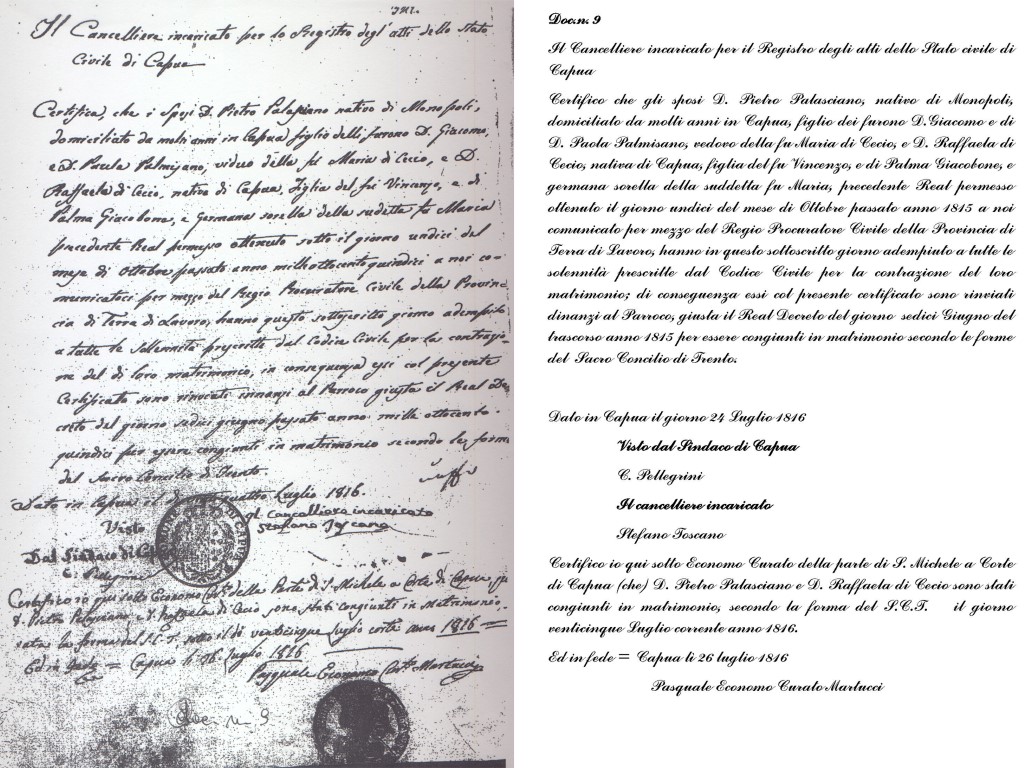 Il Cancelliere incaricato per lo Registro degl' atti dello Stato
Civile di Capua
Certifica, che i Sposi D. Pietro Palasciano nativo di Monopoli,
domiciliato da molti anni in Capua figlio delli furono D. Giacomo,
e D. Paola Palmisano, viduo della fu Maria di Cecio, e D.
Raffaela di Cecio, nativa di Capua, figlia del fu Vincenzo, e di
Palma Giacobone, e germana sorella della sudetta fu Maria
precedente Real permesso ottenuto sotto il giorno undici del
mese di Ottobre passato anno mille ottocento quindici a noi co-
municatoci per mezzo del Regio Procuratore Civile della Provin-
cia di Terra di Lavoro, hanno questo sottoscritto giorno adempito
a tutte le sollennità prescritte dal Codice Civile per la contrazio-
ne del di loro matrimonio, in conseguenza essi col presente
Certificato sono rinviati innanzi al Parroco giusta il Real De-
creto del giorno sedici giugno passato anno mille ottocento-
quindici per essere congiunti in matrimonio secondo le forme
del Sacro Concilio di Trento.
Dato in Capua il quattro Luglio 1816.
Visto
Il Cancelliere incaricato
Stefano Toscano
Dal Sindaco di Capua
C. Pellegrini
Certifico io qui sotto Economo Cur.to della Parte di S. Michele a Corte di Capua,
D. Pietro Palasciano, e D. Raffaela di Cecio, sono stati congiunti in Matrimonio,
la forma del S.C.T. sotto il dì venticinque Luglio corr.te anno 1816 =
Ed in fede = Capua li 26 luglio 1816
Pasquale Economo Cur.to Martucci
Doc. n. 9
Doc.n. 9
Il Cancelliere incaricato per il Registro degli atti dello Stato civile di
Capua
Certifico che gli sposi D. Pietro Palasciano, nativo di Monopoli,
domiciliato da molti anni in Capua, figlio dei furono D.Giacomo e di
D. Paola Palmisano, vedovo della fu Maria di Cecio, e D. Raffaela di
Cecio, nativa di Capua, figlia del fu Vincenzo, e di Palma Giacobone, e
germana sorella della suddetta fu Maria, precedente Real permesso
ottenuto il giorno undici del mese di Ottobre passato anno 1815 a noi
comunicato per mezzo del Regio Procuratore Civile della Provincia di
Terra di Lavoro, hanno in questo sottoscritto giorno adempiuto a tutte le
solennità prescritte dal Codice Civile per la contrazione del loro
matrimonio; di conseguenza essi col presente certificato sono rinviati
dinanzi al Parroco, giusta il Real Decreto del giorno sedici Giugno del
trascorso anno 1815 per essere congiunti in matrimonio secondo le forme
del Sacro Concilio di Trento.
Dato in Capua il giorno 24 Luglio 1816
Visto dal Sindaco di Capua
C. Pellegrini
Il cancelliere incaricato
Stefano Toscano
Certifico io qui sotto Economo Curato della parte di S. Michele a Corte
di Capua (che) D. Pietro Palasciano e D. Raffaela di Cecio sono stati
congiunti in matrimonio, secondo la forma del S.C.T. il giorno
venticinque Luglio corrente anno 1816.
Ed in fede = Capua li 26 luglio 1816
Pasquale Economo Curato Martucci